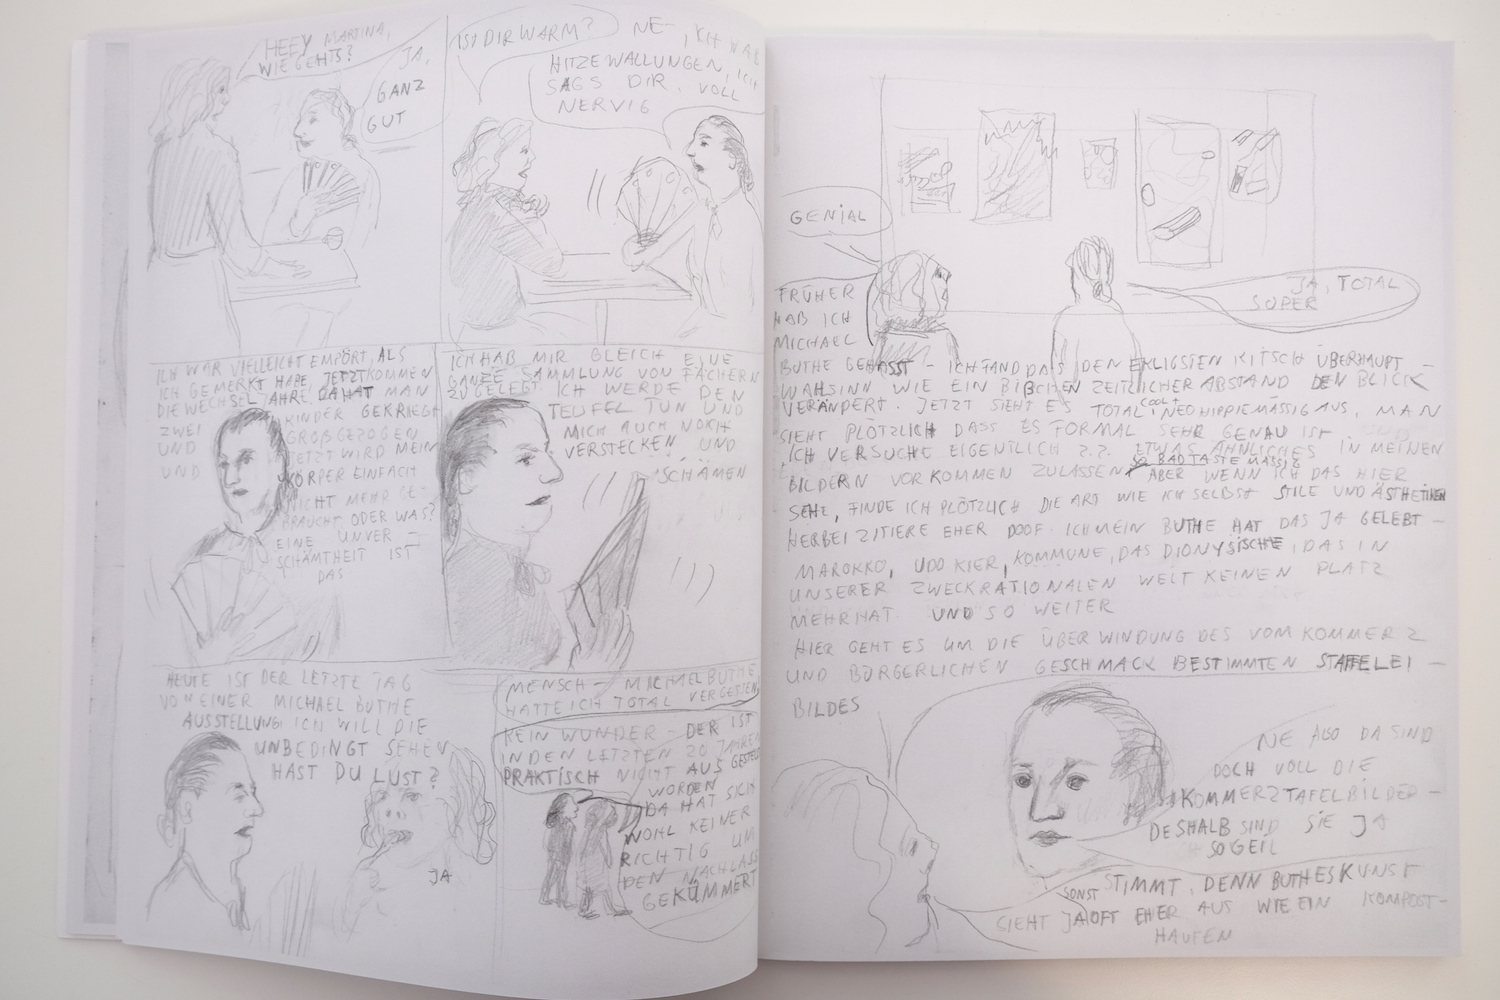 HEEY MARTINA,
WIE GEHTS?
JA,
GANZ
GUT
IST DIR WARM?
NE-, ICH HAB
HITZEWALLUNGEN, ICH
SAGS DIR. VOLL
NERVIG
ICH WAR VIELLEICHT EMPÖRT, ALS
ICH GEMERKT HABE, JETZT KOMMEN
DIE WECHSELJAHRE! DA HAT MAN
ZWEI KINDER GEKRIEGT
UND GROẞGEZOGEN
UND JETZT WIRD MEIN
KÖRPER EINFACH
NICHT MEHR GE-
BRAUCHT ODER WAS?
EINE UNVER-
SCHÄMTHEIT IST
DAS
ICH HAB MIR GLEICH EINE
GANZE SAMMLUNG VON FÄCHERN
ZUGELEGT. ICH WERDE DEN
TEUFEL TUN UND
MICH AUCH NOCH
VERSTECKEN UND
SCHÄMEN
HEUTE IST DER LETZTE TAG
VON EINER MICHAEL BUTHE
AUSSTELLUNG! ICH WILL DIE
UNBEDINGT SEHEN
HAST DU LUST?
JA
MENSCH - MICHAEL BUTHE
HATTE ICH TOTAL VERGESSEN
KEIN WUNDER - DER IST
IN DEN LETZTEN 20 JAHREN
PRAKTISCH NICHT AUSGESTELLT
WORDEN
DA HAT SICH
WOHL KEINER
RICHTIG UM
DEN NACHLASS
GEKÜMMERT
GENIAL
JA, TOTAL
SUPER
FRÜHER
HAB ICH
MICHAEL
BUTHE GEHASST - ICH FAND DAS DEN EKLIGSTEN KITSCH ÜBERHAUPT -
WAHSINN WIE EIN BIẞCHEN ZEITLICHER ABSTAND DEN BLICK
VERÄNDERT. JETZT SIEHT ES TOTAL COOL + NEOHIPPIEMÄSSIG AUS, MAN
SIEHT PLÖTZLICH DASS ES FORMAL SEHR GENAU IST
ICH VERSUCHE EIGENTLICH Z.Z. ETWAS ÄHNLICHES IN MEINEN
SO BADTASTE MÄSSIG
BILDERN VORKOMMEN ZULASSEN ABER WENN ICH DAS HIER
SEHE, FINDE ICH PLÖTZLICH DIE ART WIE ICH SELBST STILE UND ÄSTHETIKEN
HERBEIZITIERE EHER DOOF. ICH MEIN BUTHE HAT DAS JA GELEBT -
MAROKKO, UDO KIER, KOMMUNE, DAS DIONYSISCHE, DAS IN
UNSERER ZWECKRATIONALEN WELT KEINEN PLATZ
MEHR HAT UND SO WEITER
HIER GEHT ES UM DIE ÜBERWINDUNG DES VOM KOMMERZ
UND BÜRGERLICHEN GESCHMACK BESTIMMTEN STAFFELEI-
BILDES
NE ALSO DA SIND
DOCH VOLL DIE
KOMMERZTAFELBILDER -
DESHALB SIND SIE JA
SO GEIL
STIMMT, DENN BUTHES KUNST
SONST
SIEHT JA OFT EHER AUS WIE EIN KOMPOST-
HAUFEN